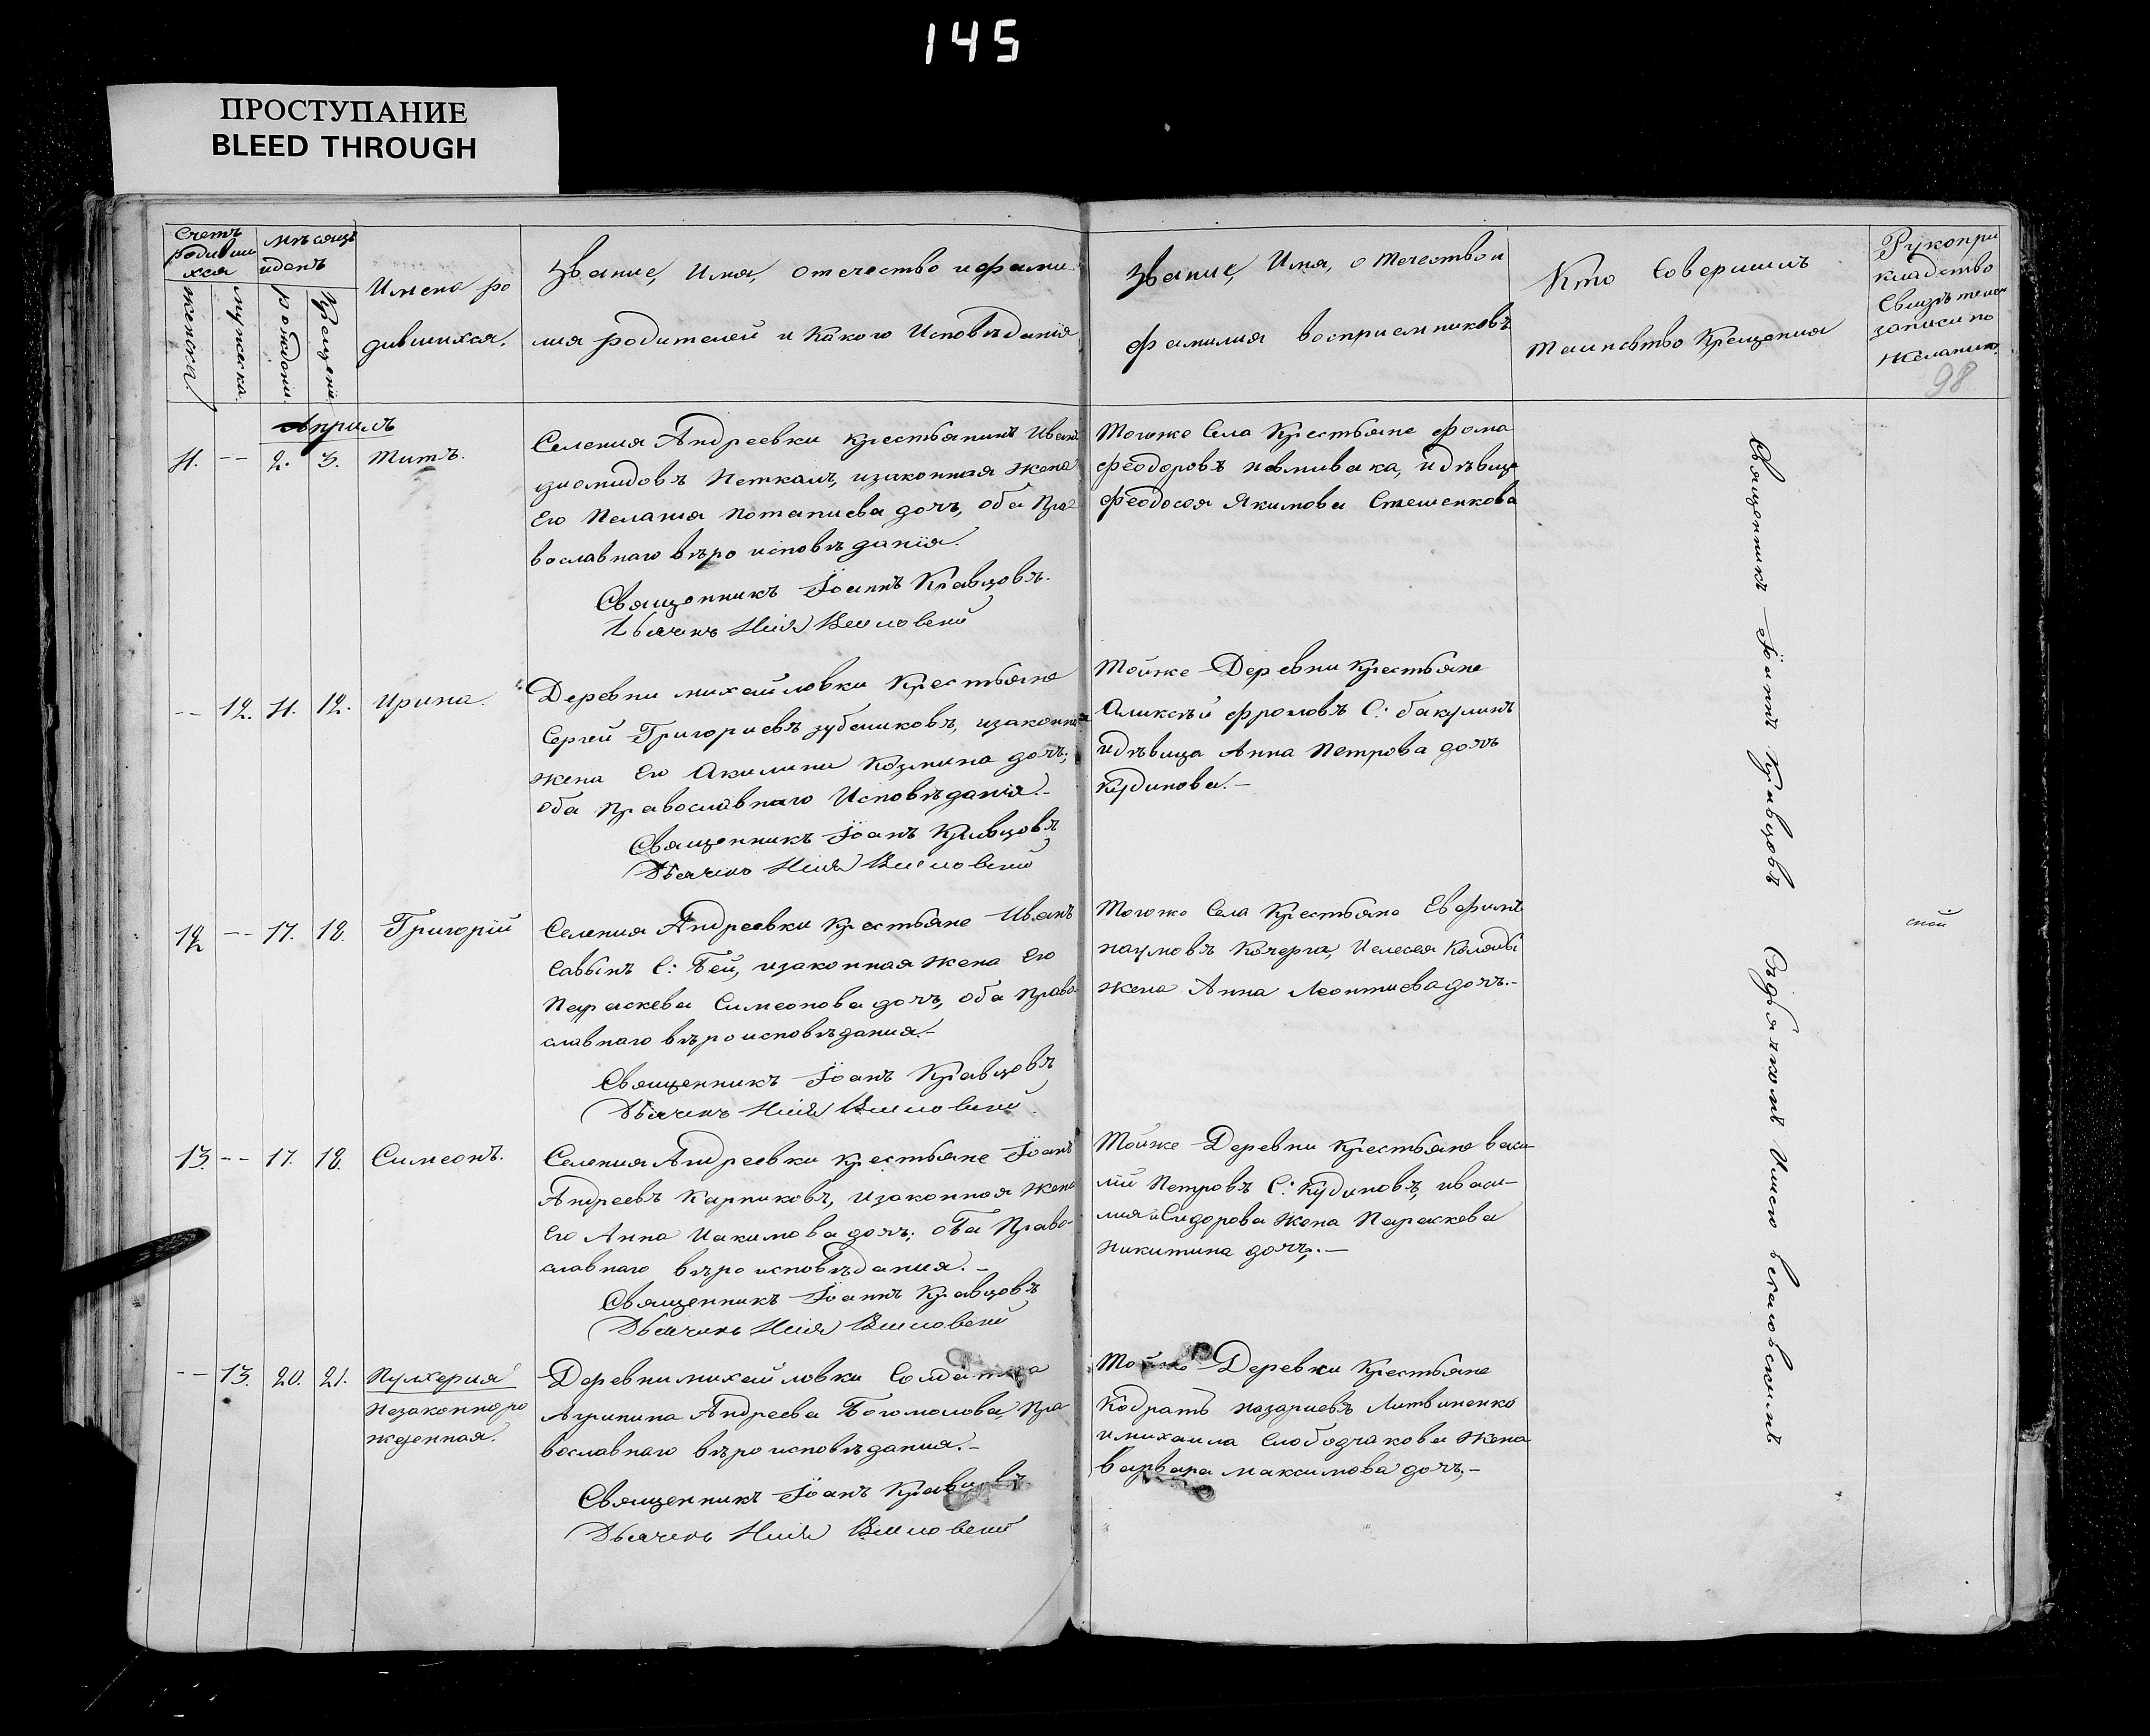 145
ПРОСТУПАНИЕ
BLEED THROUGH
Счетъ
родивши
хся
мѣсяцъ
иденъ
женска
мужеска.
рождени.
Крещенія.
Имена ро
дившихся.
Званіе, Имя, отечество ифами-
лія родителей и Какого Исповѣданія
Званіе, Имя, отечествои
фамилия восприемниковъ
Кто Совершилъ
таинсвтво Крещения
Рукопри
кладство
Свидѣтелей
записи по
желанию.
98
Апрѣль
11. -- 2. 3. Титъ.
Селения Андреевки крестьянинъ Иванъ
Петкалъ, изаконная жена
Его Пелагия Потапиева дочъ, оба Пра
вославнаго вѣроисповѣданія.
Священникъ Іоаннъ Кравцовъ.
Дьячекъ
Тогоже Села Крестьяне Фома
Феодоровъ идѣвица
Феодосья Якимова Стешенкова
-- 12. 11. 12. Ирина.
Деревни михайловки Крестьяне
Сергей Григориевъ зубениковъ, изаконная
жена Его Акилина Козмина дочъ;
оба Православнаго Исповѣданія.-
Священникъ Іоанъ Кравцовъ
Дьячекъ
Тойже Деревни Крестьяне
Аликсѣй фроловъ С: бакулинъ
идѣвица Анна Петрова дочъ
Кудинова.-
12 -- 17. 18. Григорій
Селения Андреевки Крестьяне Иванъ
Савынъ С: Бей, изаконная жена Его
Параскева Симеонова дочъ, оба Право-
славнаго вѣроисповѣдания.-
Священникъ Іоанъ Кравцовъ
Дьячекъ
Тогоже Села Крестьяне Евфимъ
наумовъ Кочерга, Иелесея Коляды
жена Анна Леонтиева дочъ.-
13. -- 17. 18. Симеонъ.
Селения Андреевки крестьяне Іоанъ
Андреевъ Карпиковъ, изаконная жена
Его Анна Иакимова дочъ; оба Право-
славнаго вѣроисповѣдания.-
Священникъ Іоаннъ Кравцовъ
Дьячекъ
Тойже Деревни Крестьяне васи-
лій Петровъ С: Кудиновъ, иваси-
лия Сидорова жена Параскева
Никитина дочъ.-
-- 13. 20. 21. Пулхерия
Незаконноро
жденная.
Деревнимихайловки Солдатка
Агрипина Андреева Богомолова, Пра
вославнаго вѣроисповѣдания.-
Священникъ Іоанъ Кравцовъ
Дьячекъ
Тойже Деревни Крестьяне
Кодратъ назариевъ Литвиненко
имихаила Слободчакова жена
варвара максимова дочъ.-
Священникъ Іоаннъ Кравцовъ Съдьячкомъ